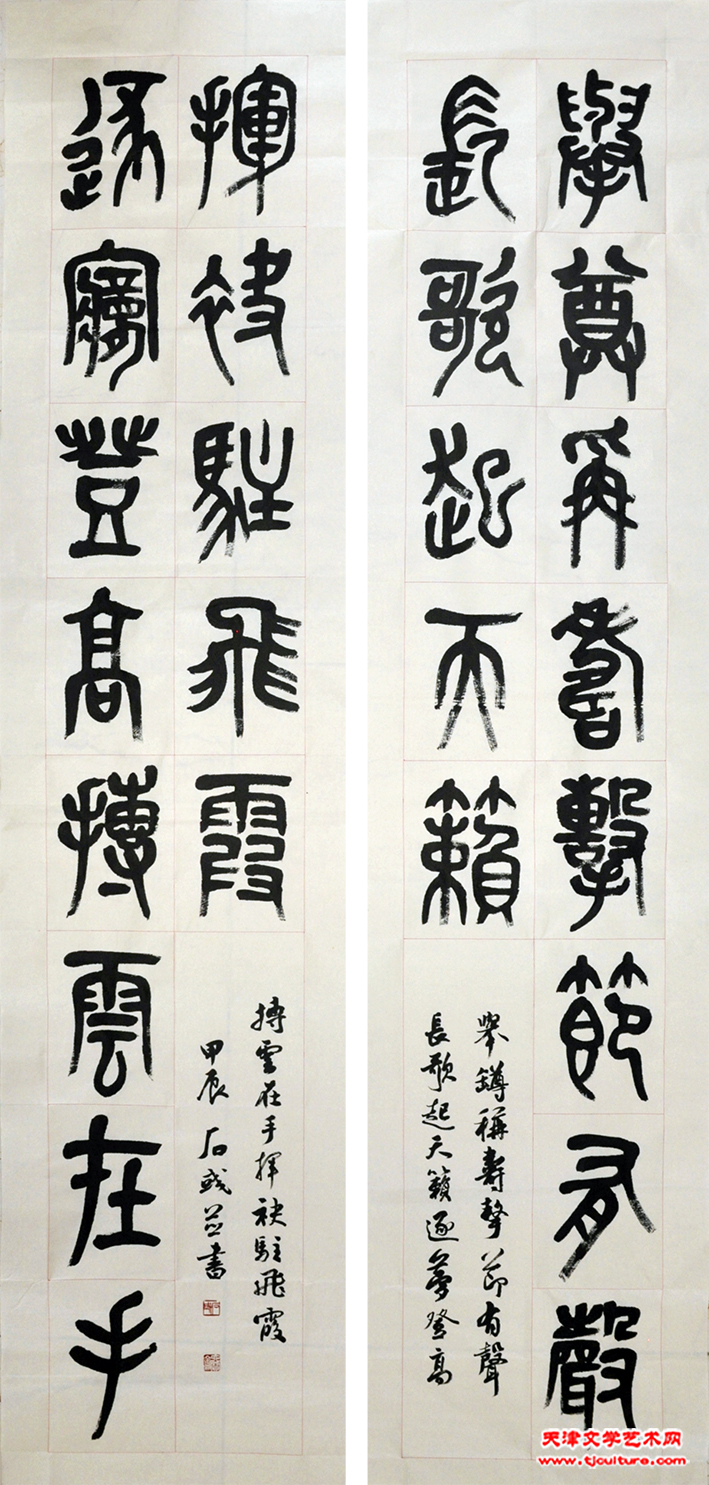 舉尊爯壽擊節有聲
長歌起天籟
舉罇稱壽擊節有聲
長歌起天籟逐夢登高
逐夢登高搏雲在手
揮袂駐飛霞
搏雲在手揮袂駐飛霞
甲辰 石或並書
天津文学艺术网
www.tjculture.com